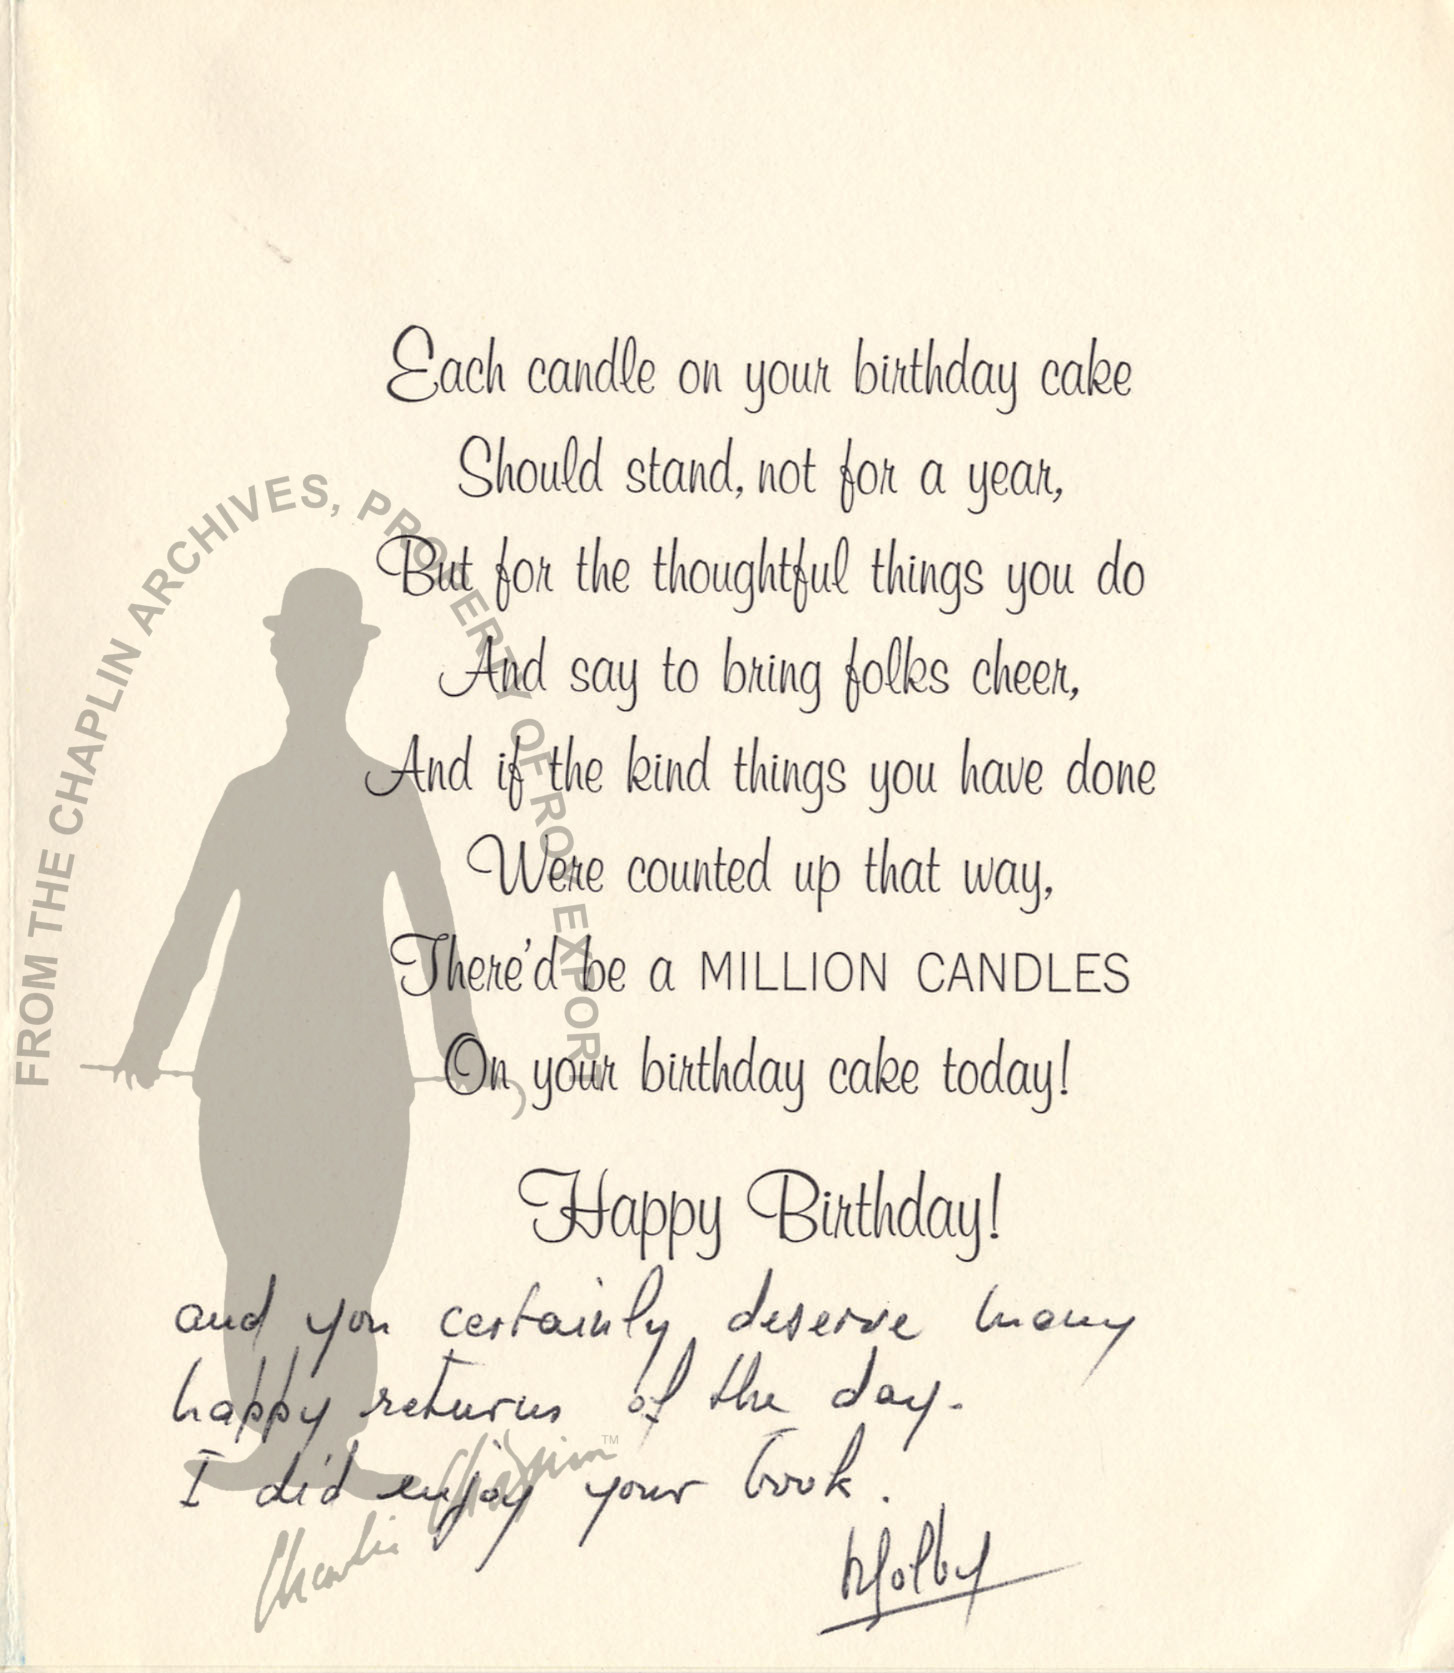 Each candle on your birthday cake
Should stand, not for a year,
But for the thoughtful things you do
And say to bring folks cheer,
And if the kind things you have done
Were counted up that way,
There'd be a MILLION CANDLES
On your birthday cake today!
Happy Birthday!
and you certainly deserve many
happy returns of the day.
I did enjoy your book.
FROM THE CHAPLIN ARCHIVES, PROPERTY OF ROY EXPORT
Charlie Chaplin™